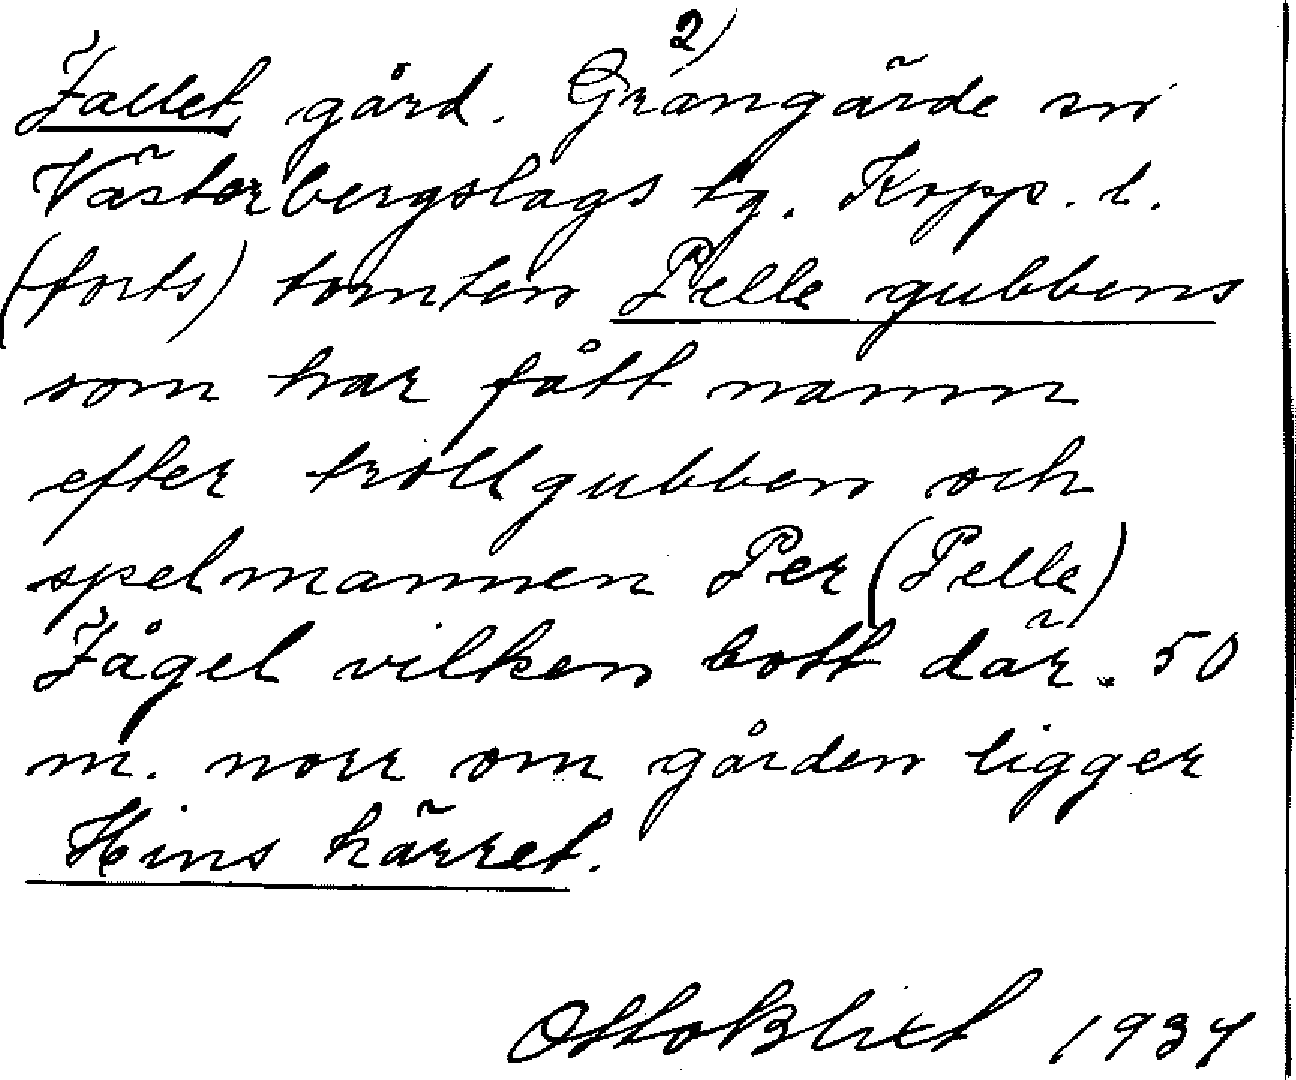 2)
Fallet gård. Grangärde sn i
Västerbergslags tg. Kopp. l.
(forts) tomten Pelle gubbens
som har fått namn
efter trollgubben och
spelmannen Per (Pelle)
Fågel vilken bott där. 50
m. norr om gården ligger
Hins kärret.
Otto Blixt 1934